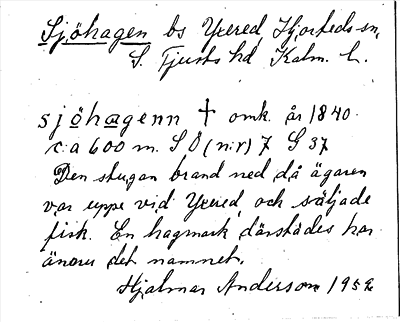 Sjöhagen bs Yxered, Hjorteds sn,
S. Tjusts hd Kalm. l.
sjöhagenn † omk. år 1840.
c:a 600 m. S Ö (n:r) 7 G 37
Den stugan brand ned, då ägaren
var uppe vid Yxered, och säljade
fisk. En hagmark därstädes har
ännu det namnet.
Hjalmar Anderson 1952